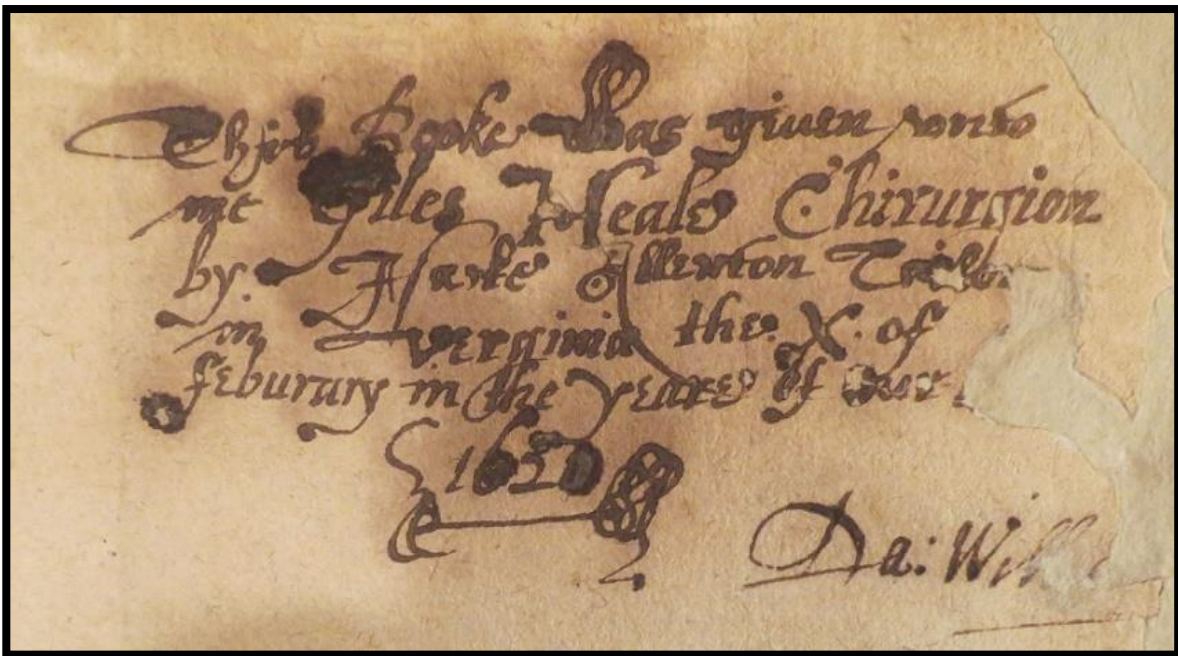 This Booke was given vnto
me Gyles Heale Chirurgion
by. Isacke Allerton Tailor
in verginia the. X. of
feburary in the Yeare of our
1620
Da: